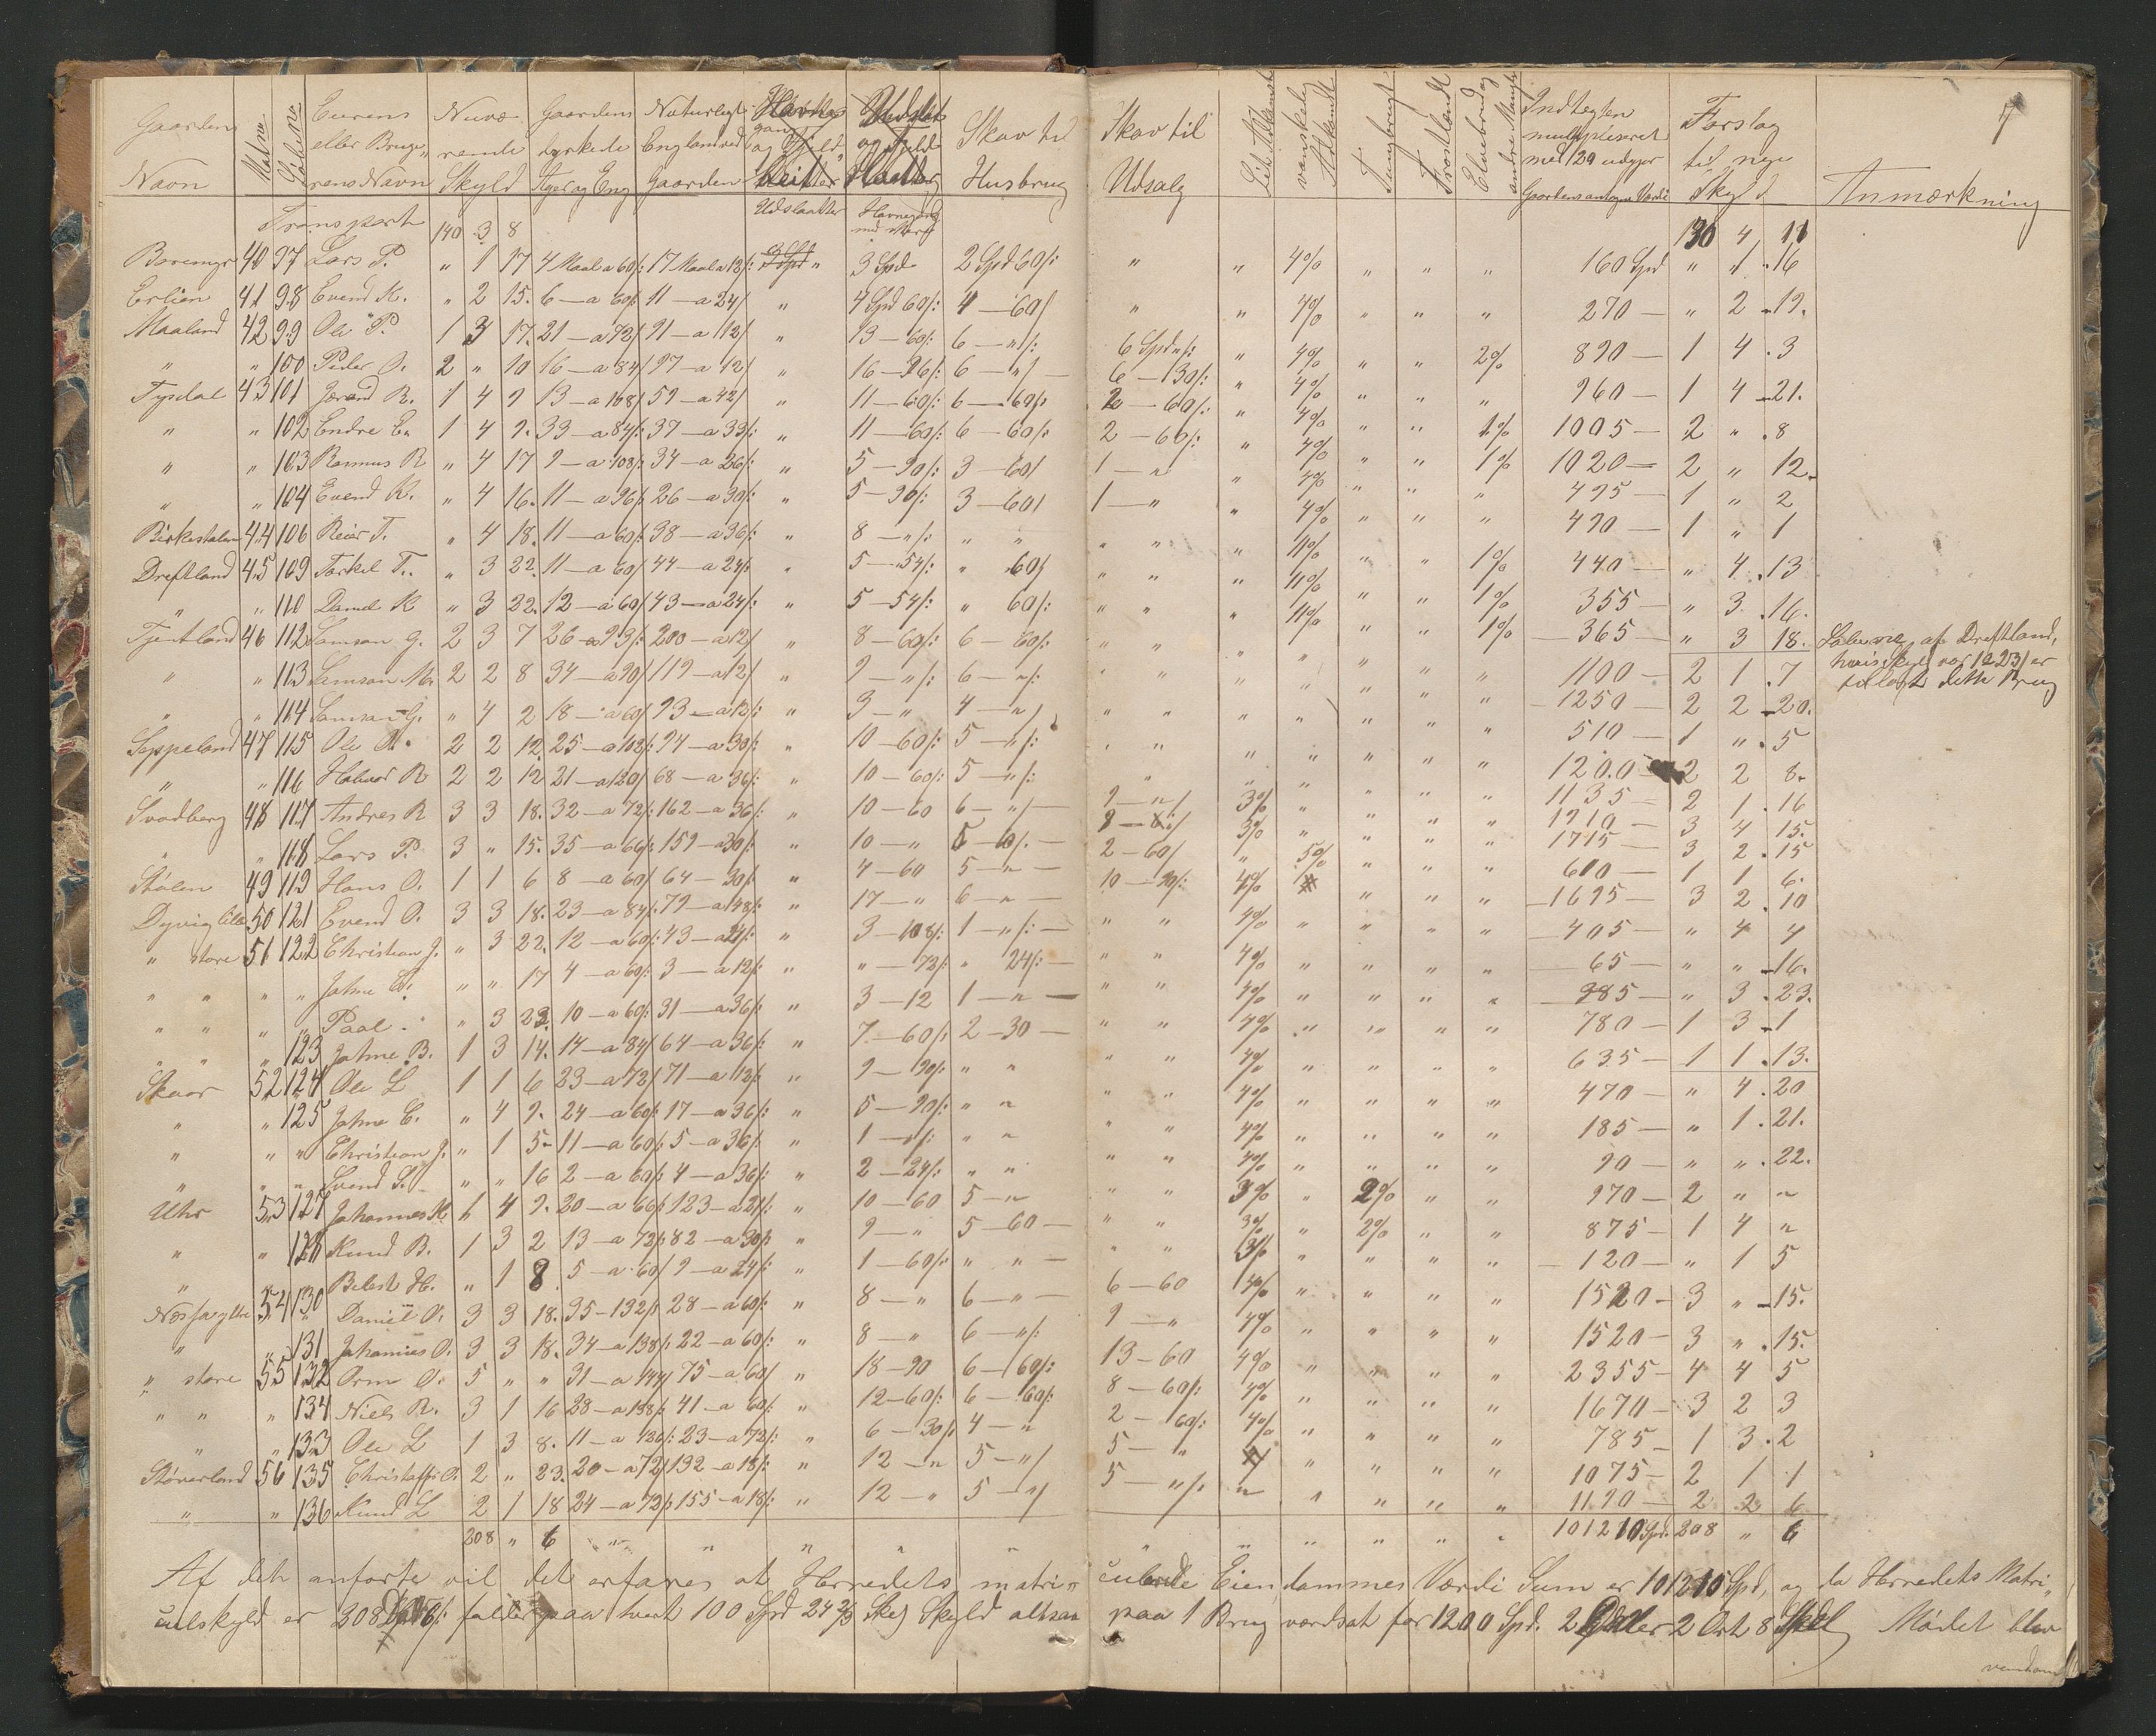 Gaardens Navn | Mat. nr | Løbe nr | Eierens eller Brugerens Navn | Nuværende Skyld | Gaardens dyrkede Ager og Eng | Naturligt England ved Gaarden | Udslaatter | Havnegang med | Skov til Husbrug | Skov til Udsalg | Lidt | vanskelig | Tungbrugt | Frostlændt | Elvebrud og andre Mangler | Indtegten multipliseret med 20 udgjør Gaardens antagne Værdi | Forslag til nye Skyld | Anmærkning
Transport 140 3 8 | 130 4 11
40 97 Lars P. " 1 17 4 Maal a 60/: 17 Maal a 12/: " 3 Spd 2 Spd 60/: " " 4% " " " 160 Spd " 1 16
Erlien 41 98 Evend K. " 2 15. 6 — a 60/: 11 — a 24/ " 4 Spd 60/: 4 — 60/ " " 4% " " " 270 — " 2 19.
Maaland 42 99 Ole P. 1 3 17. 21 — a 72/ 91 — a 12/ " 13 — 60/: 6 — "/: 6 Spd "/: " 4% " " 2% 890 — 1 4 . 3
" " 100 Peder O. 2 " 10 16 — a 84/ 97 — a 12/ " 16 — 96/: 6 — "/ — 6 — 30/: " 4% " " " 960 — 1 4 — 21.
Tysdal 43 101 Jorand R. 1 4 9 13 — a 108/ 59 — a 42/ " 11 — 60/: 6 — 60/: 2 — 60/: " 4% " " 1% 1005 — 2 " . 8
" " 102 Endre E. 1 4 9. 33 — a 84/: 37 — a 33/: " 11 — 60/: 6 — 60/: 2 — 60/: " 4% " " 1% 1020 — 2 " 12.
" " 103 Rasmus R " 4 17 9 — a 108/: 34 — a 26/: " 5 — 90/: 3 — 60/ 1 — " " 4% " " " 495 — 1 " 2
" " 104 Evend K. " 4 16. 11 — a 96/: 26 — a 30/: " 5 — 90/: 3 — 60/ 1 — " " 4% " " " 490 — 1 " 1
44 106 Reier T. " 4 18. 11 — a 60/: 38 — a 36/: " 8 — "/: " " " " " 11% " " 1% 440 — " 4 . 13
Dreftland 45 109 Torkel T. " 3 22. 11 — a 60/ 44 — a 24/: " 5 — 54/: " 60/ " " " 11% " " 1% 355 — " 3 . 16.
" " 110 Daniel K " 3 22. 12 — a 60/ 43 — a 24/: " 5 — 54/: " 60/: " " " 11% " " 1% — 365 — " 3 18. Løbe nr af Dreftland,
Tjentland 46 112 Samson G. 2 3 7 26 — a 93/: 200 — a 12/ " 8 — 60/: 6 — 60/: " " " " " " " 1100 — 2 1 . 7 hvis Skyld var 1 a 23/ er
" " 113 Samson M. 2 2 8 34 — a 90/ 119 — a 12/ " 9 — "/: 6 — "/: " " " " " " " — 1250 — 2 2 — 20. tillagt dette Brug
" " 114 Samson G. " 4 2 18 — a 60/ 93 — a 12/: " 3 — " 4 — "/ " " " " " " " 510 — 1 " . 5
47 115 Ole O. 2 2 12. 25 — a 102/: 94 — a 30/: " 10 — 60/: 5 — "/: " " " " " " " 1200 — 2 2 8.
" " 116 Halvor R 2 2 12 21 — a 120/ 68 — a 36/: " 10 — 60/: 5 — "/: " " " " " " 1135 — 2 1 . 16
Svadberg 48 117 Andres R 3 3 18. 32 — a 72/: 162 — a 36/: " 10 — 60 6 — "/ — 9 — "/ 3% " " " " 1910 — 3 4 15.
" " 118 Lars P. 3 " 15. 35 — a 66/: 159 — a 30/: " 10 — " 5 — 60/. — 8 — "/ 3% " " " " 1715 — 3 2 . 15
Stølen 49 119 Hans O. 1 1 6 8 — a 60/ 64 — 30/: " 4 — 60 5 — " — 2 — 60/ " 5% " " " 600 — 1 1 6.
Dyvig lille 50 121 Evend O. 3 3 18. 23 — a 84/: 79 — a 48/: " 17 — " 6 — " — 10 — 90/: 4% " " " — 1695 — 3 2 . 10
" store 51 122 Christian J. " 3 22. 12 — a 60/: 43 — a 21/: " 3 — 108/: 1 — "/: — " " 4% " " " " — 405 — " 4 4
" " " " Johne E. " " 17 4 — a 60/: 3 — a 12/: " " — 72/: " 24/: — " " 4% " " " " — 65 — " " — 16.
" " " " Paal . " 3 23. 10 — a 60/: 31 — a 36/: " 3 — 12 1 — " — " " 4% " " " " — 385 — " 3 . 23.
" " " 123 Johne B. 1 3 14. 14 — a 84/ 64 — a 36/: " 7 — 60/: 2 — 30 — " " 4% " " " " 780 — 1 3 — 1
Skaar 52 124 Ole L 1 1 6 23 — a 72/ 71 — a 12/: " 9 — 90/: " " " " 4% " " " " 635 — 1 1 . 13.
" " 125 Johne C. " 4 9. 24 — a 60/: 17 — a 36/: " 5 — 90/: " " " " 4% " " " " 470 — " 4 . 20
" " " Christian J. " 1 5 — 11 — a 60/: 5 — a 36/: " 1 — "/: " " " " 4% " " " " 185 — " 1 . 21.
" " " Svend S. " " 16 2 — a 60/: 4 — a 36/: " 2 — 24/: " " " " 4% " " " " 90 — " " . 22.
Uhr 53 127 Johannes K 1 4 9. 20 — a 66/: 123 — a 21/: " 10 — 60 5 — " " " 3% " 2% " " 970 — 2 " "
" " 128 Knud B. 1 3 2 13 — a 72/: 82 — a 30/: " 9 — " 5 — 60 — " " 3% " 2% " " 875 — 1 4 "
" H. " 1 8 . 5 — a 60/ 9 — a 24/: " 1 — 60/: " " — " " 3% " " " " — 120 — " 1 5
54 130 Daniel O. 3 3 18. 35 — 132/: 28 — a 60/: " 8 — " 6 — " — 6 — 60 4% " " " " 1520 — 3 " — 15.
" " 131 Johannes O. 3 3 18. 34 — a 138/: 22 — a 60/: " 8 — " 6 — "/: 9 — " 4% " " " " 1520 — 3 " . 15.
" store 55 132 Orm O. 5 " " 31 — a 144/ 75 — a 60/ " 18 — 90 6 — 60/: 13 — 60 4% " " " " 2355 — 4 4 5
" " " 134 Niels R. 3 1 16 28 — a 138/: 41 — a 60/: " 12 — 60/: 6 — 60/: 8 — 60/: 4% " " " " 1670 — 3 2 3
" " 133 Ole L 1 3 8. 11 — a 126/: 23 — a 72/: " 6 — 30/: 4 — " 2 — 60/: 4% " " " " 785 — 1 3 . 2
Støverland 56 135 Christoffer O. 2 " 23. 20 — a 72/ 132 — a 18/: " 12 — " 5 — "/ 5 — " " " " " 1075 — 2 1 1
" " 136 Knud L 2 1 18 24 — a 72/: 155 — a 18/: " 12 — " 5 — "/ 5 — "/: " " " " " 1190 — 2 2 6
208 " 6 " " " " " " " " " " " 101210 Spd. 208 " 6
Af det anførte vil det erfares at Herredets matri„ culerede Eiendommes Værdi Sum er 101210 Spd, og da Herredets Matri„
culskyld er 208 falder paa hvert 100 Spd 24 2/3 Skj Skyld altsaa paa 1 Brug værdsat for 1200 Spd. 2 Daler 2 Ort 8 Skil Mødet blev